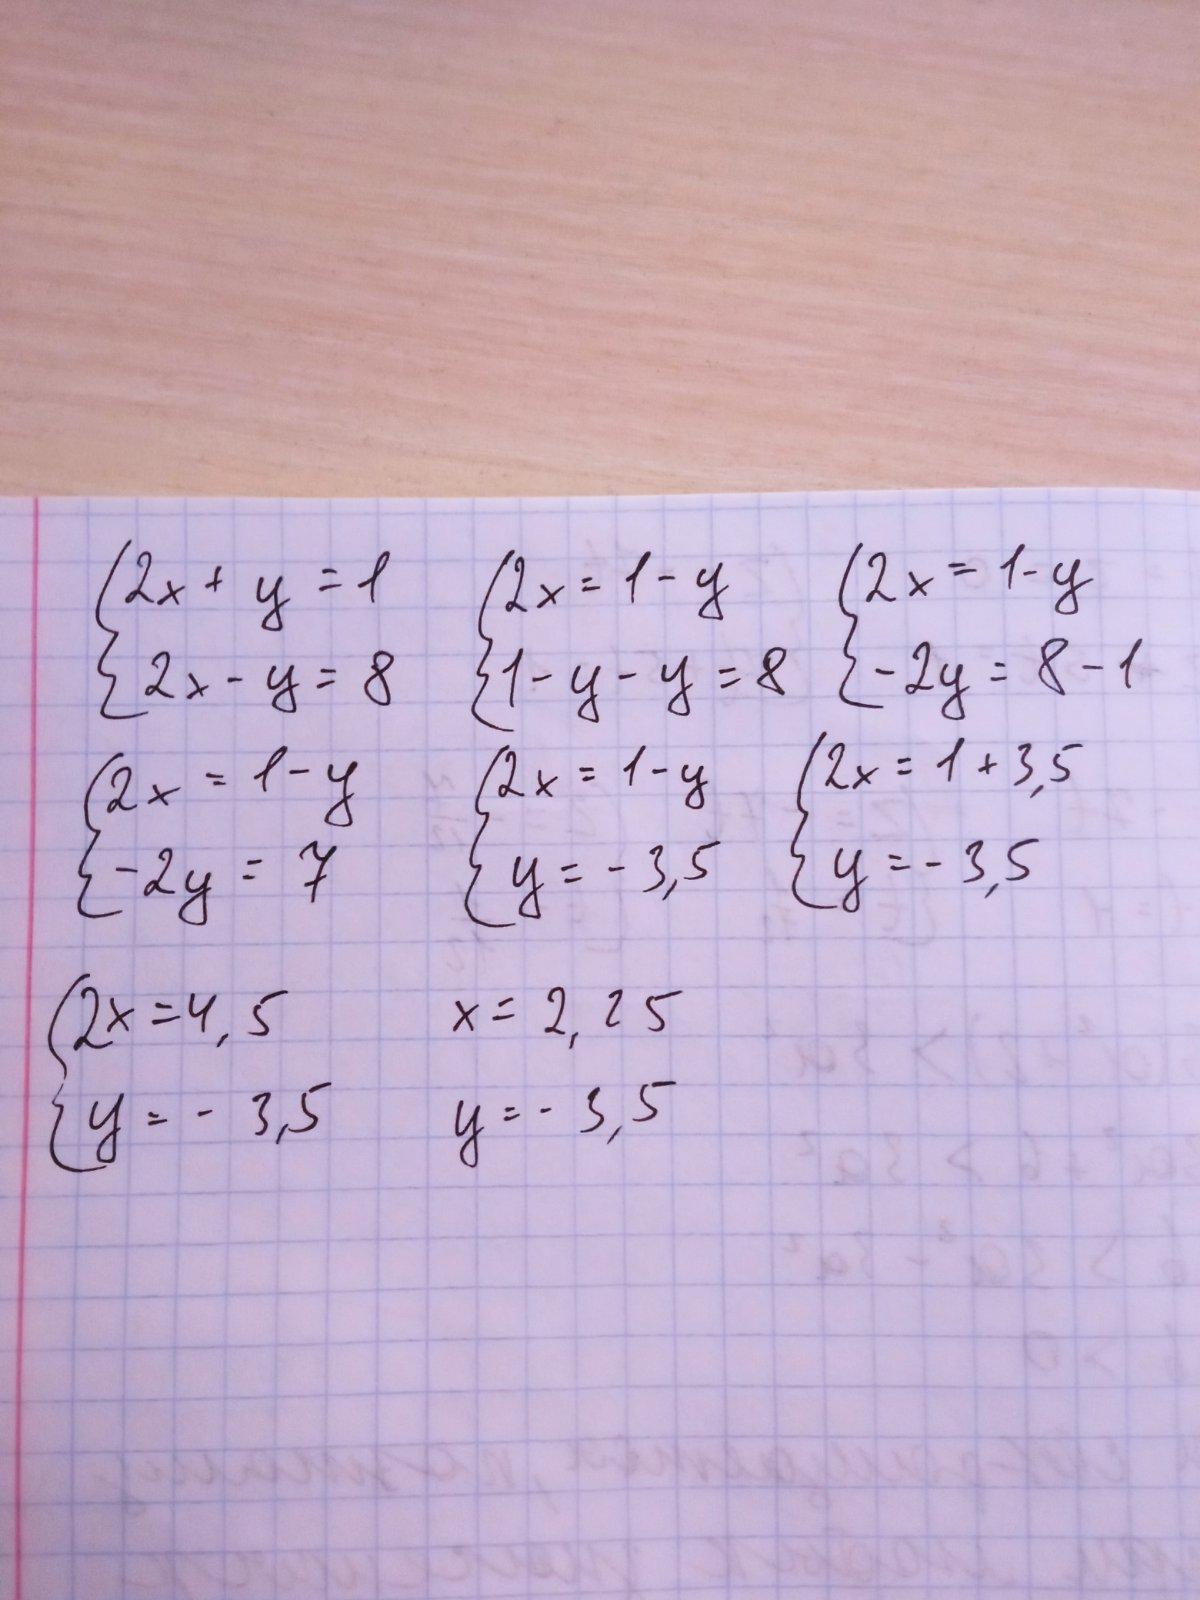 2x + y = 1
2x - y = 8
2x = 1 - y
1 - y - y = 8
2x = 1 - y
-2y = 8 - 1
2x = 1 - y
-2y = 7
2x = 1 - y
y = - 3,5
2x = 1 + 3,5
y = - 3,5
2x = 4,5
y = - 3,5
x = 2,25
y = - 3,5